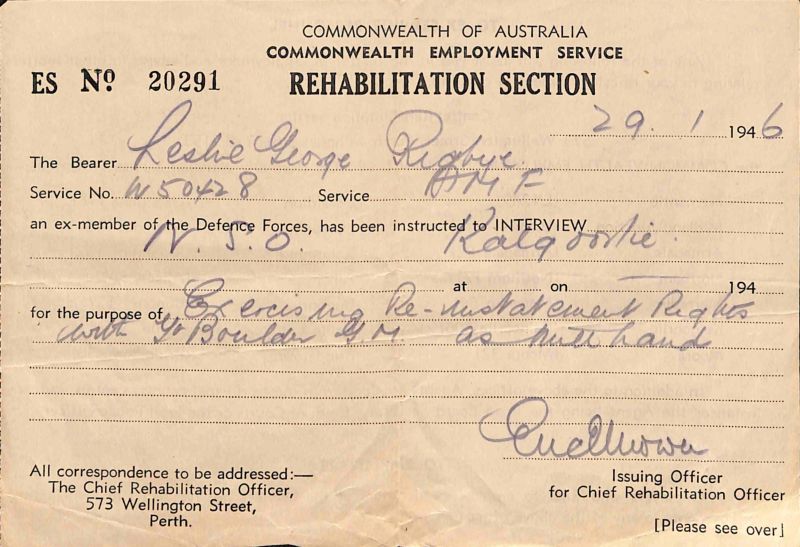 COMMONWEALTH OF AUSTRALIA
COMMONWEALTH EMPLOYMENT SERVICE
ES No 20291 REHABILITATION SECTION
29. 1 1946
The Bearer Leslie George Rigbye.
Service No. W50428 Service AMF
an ex-member of the Defence Forces, has been instructed to INTERVIEW
N.S.O. Kalgoorlie.
at on 194
for the purpose of Exercising Re-instatement Rights
with Gt Boulder G.M. as Mill hand
All correspondence to be addressed:—
The Chief Rehabilitation Officer,
573 Wellington Street,
Perth.
Issuing Officer
for Chief Rehabilitation Officer
[Please see over]